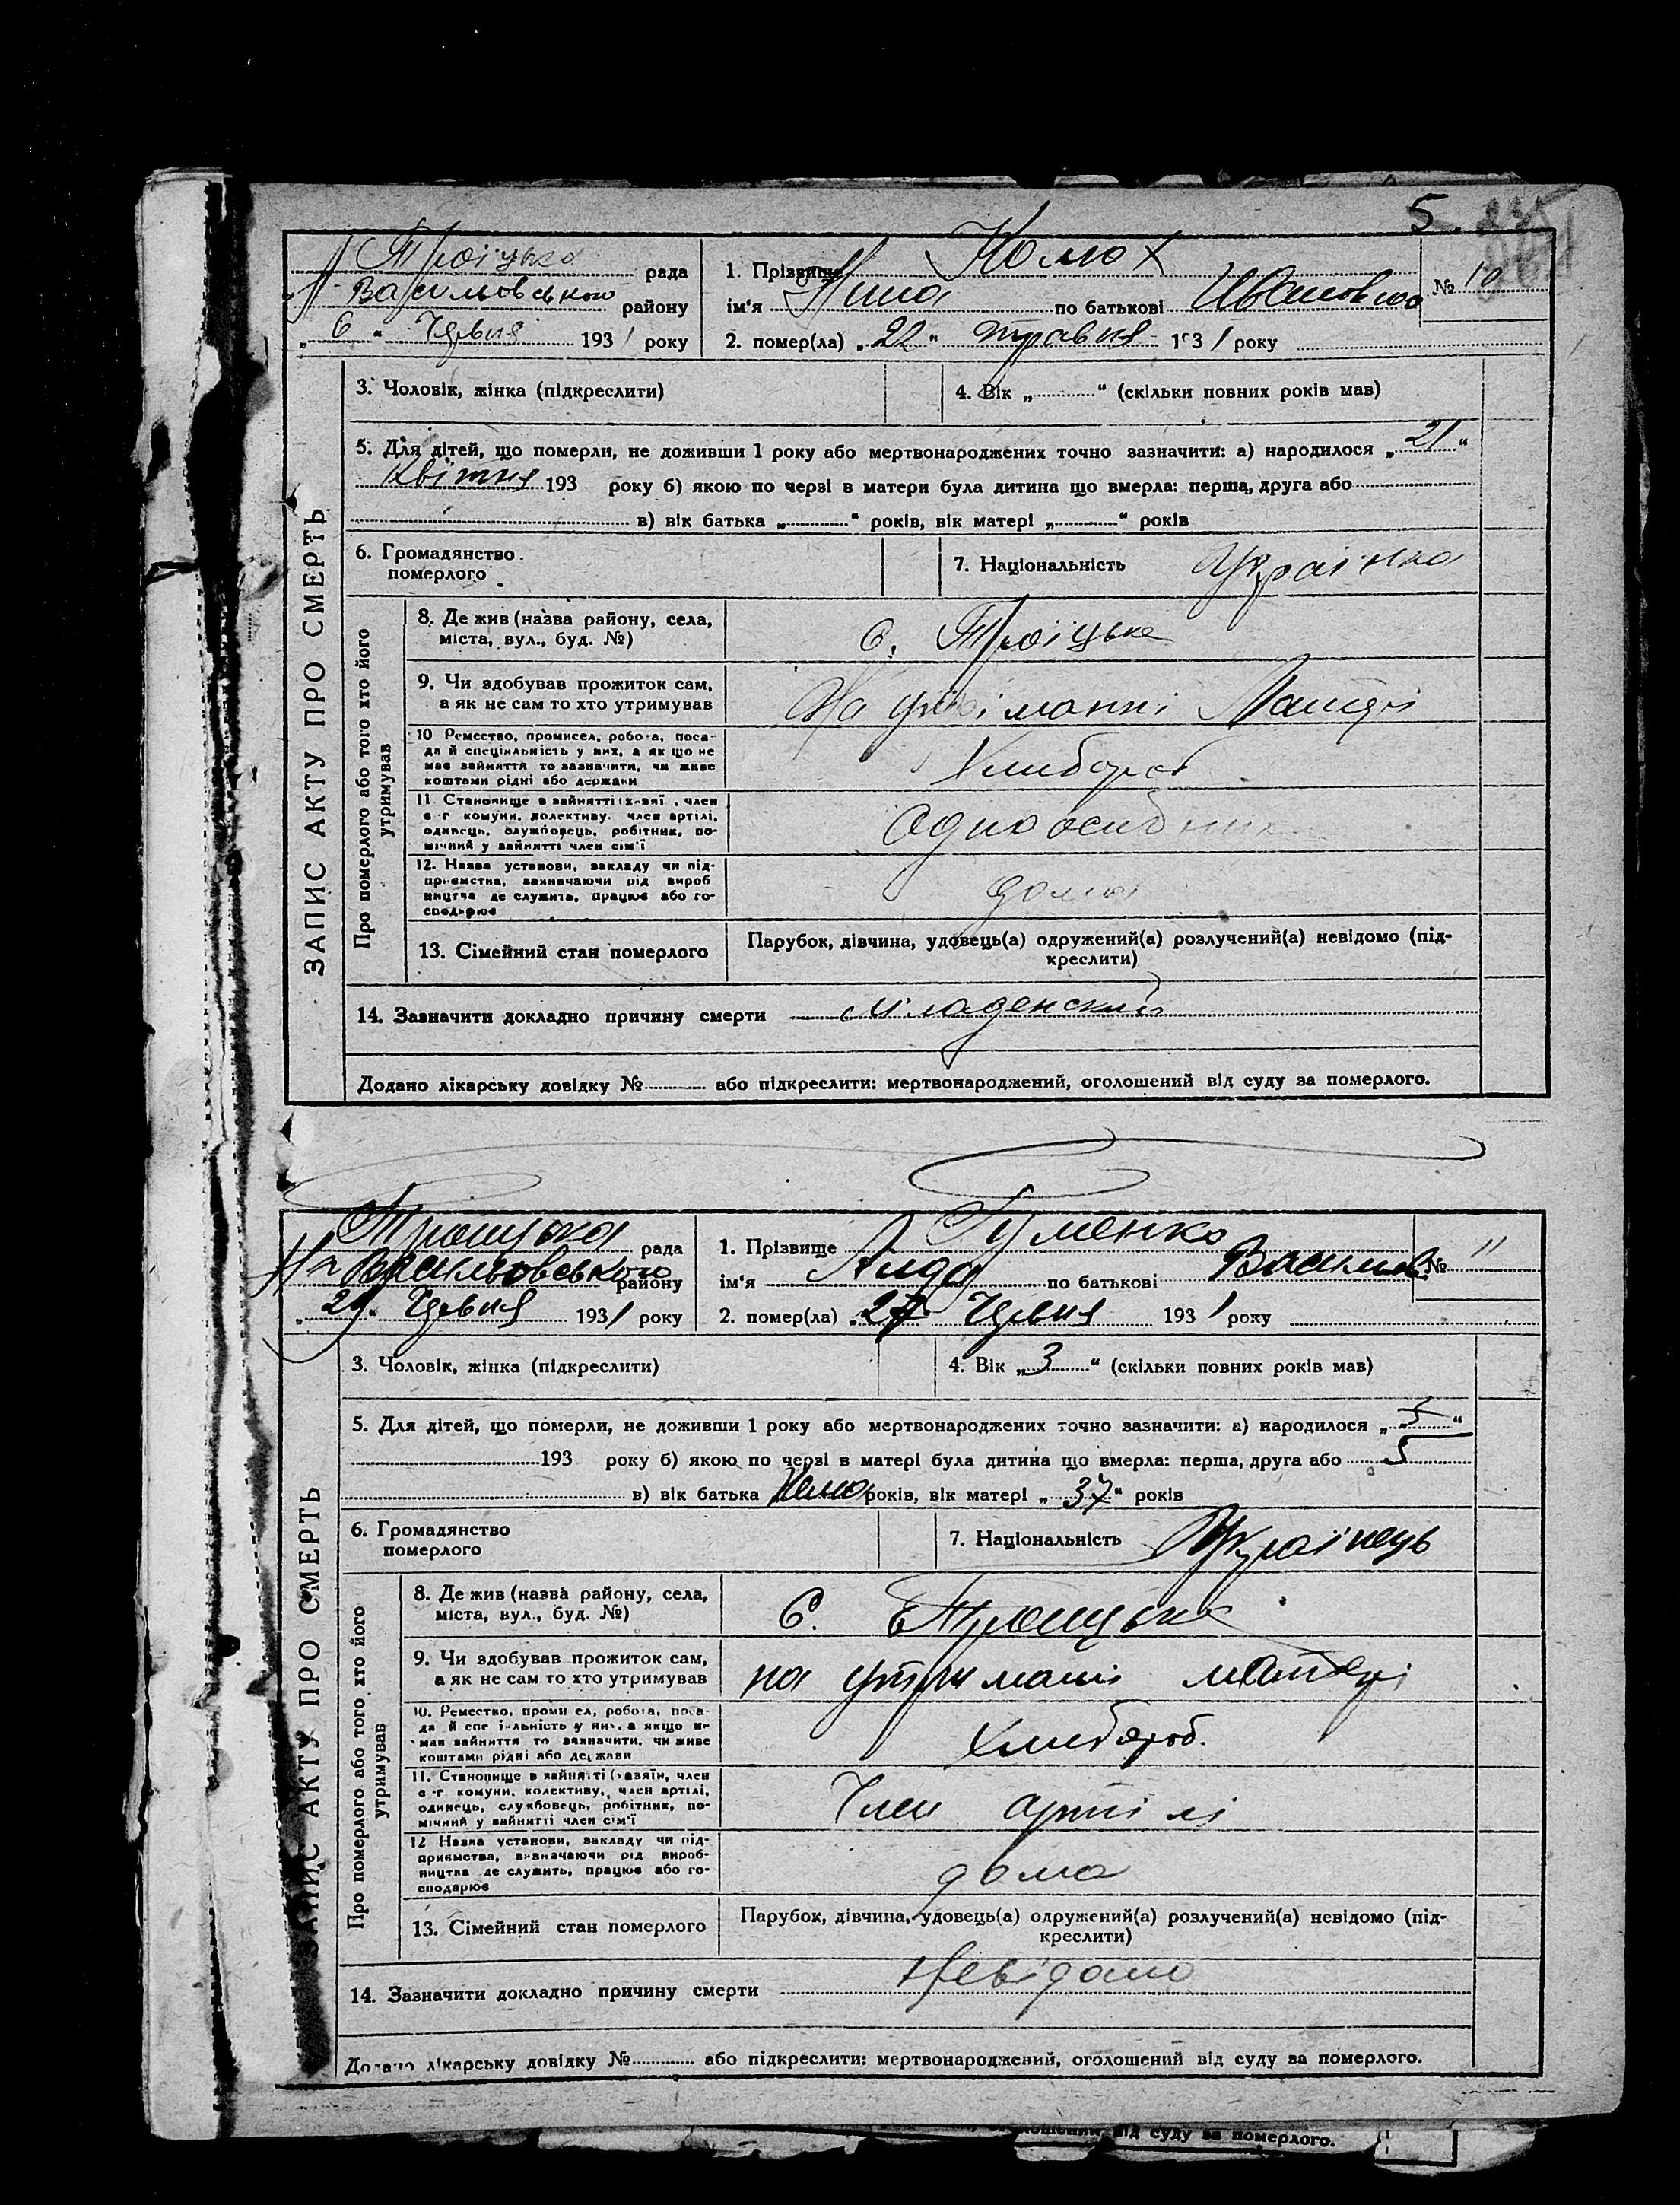 5.
Троіцька рада
Васильовського району
„ 6 " Червня 1931 року
1. Прізвище Комох
ім'я Нина по батькові Ивановна
№ 10
2. помер(ла) „ 22 " травня 1931 року
ЗАПИС АКТУ ПРО СМЕРТЬ
3. Чоловік, жінка (підкреслити)
4. Вік „ " (скільки повних років мав)
5. Для дітей, що померли, не доживши 1 року або мертвонароджених точно зазначити: а) народилося „ 21 "
Квітня 193 року б) якою по черзі в матери була дитина що вмерла: перша, друга або
в) вік батька „ " років, вік матері „ " років
6. Громадянство
померлого
7. Національність Українка
Про померлого або того хто його
утримував
8. Де жив (назва району, села,
міста, вул., буд. №)
С. Троіцьке
9. Чи здобував прожиток сам,
а як не сам то хто утримував
На утріманні Матері
10 Ремество, промисел, робота, поса-
да й спеціяльність у них, а як що не
має вайняття то зазначити, чи живе
коштами рідні або держави
Хлибороб
11. Становище в вайнятті , член
с-г комуни, колективу, член артілі,
одинець, службовець, робітник, по-
мічний у вайнятті член сім'ї
Одноосибник
12. Назва установи, закладу чи під-
приємства, вазначаючи рід вироб
ництва де служить, працює або го-
сподарює
дома
13. Сімейний стан померлого
Парубок, дівчина, удовець(а) одружений(а) розлучений(а) невідомо (під-
креслити)
14. Зазначити докладно причину смерти младенский
Додано лікарську довідку № або підкреслити: мертвонароджений, оголошений від суду за померлого.
Троицька рада
Васильовського району
„ 29. Червня 1931 року
1. Прізвище Гуменко
ім'я Лида по батькові Васильев.
№ 11
2. помер(ла) „ 27 Червня 1931 року
ЗАПИС АКТУ ПРО СМЕРТЬ
3. Чоловік, жінка (підкреслити)
4. Вік „ 3 " (скільки повних років мав)
5. Для дітей, що померли, не доживши 1 року або мертвонароджених точно зазначити: а) народилося „ 5 "
193 року б) якою по черзі в матері була дитина що вмерла: перша, друга або 5
в) вік батька років, вік матері „ 37 " років
6. Громадянство
померлого
7. Національність Українець
Про померлого або того хто його
утримував
8. Де жив (назва району, села,
міста, вул., буд. №)
С. Троицьке
9. Чи здобував прожиток сам,
а як не сам то хто утримував
на утримані матері
10. Ремество, проми ел, робота, поса-
да й спе і-льність у них, а якщо не
має вайняття то вазначити, чи живе
коштами рідні або держави
Хлибороб.
11. Становище в вайнятті (хазяїн, член
с-г комуни, колективу, член артілі,
одинець, службовець, робітник, по-
мічний у вайнятті член сім'ї
Член артілі
12 Назва установи, закладу чи під-
приємства, вазначаючи рід вироб-
ництва де служить, працює або го-
сподарює
дома
13. Сімейний стан померлого
Парубок, дівчина, удовець(а) одружений(а) розлучений(а) невідомо (під-
креслити)
14. Зазначити докладно причину смерти Невідомо
Додано лікарську довідку № або підкреслити: мертвонароджений, оголошений від суду за померлого.
оголошений від суду за померлого.